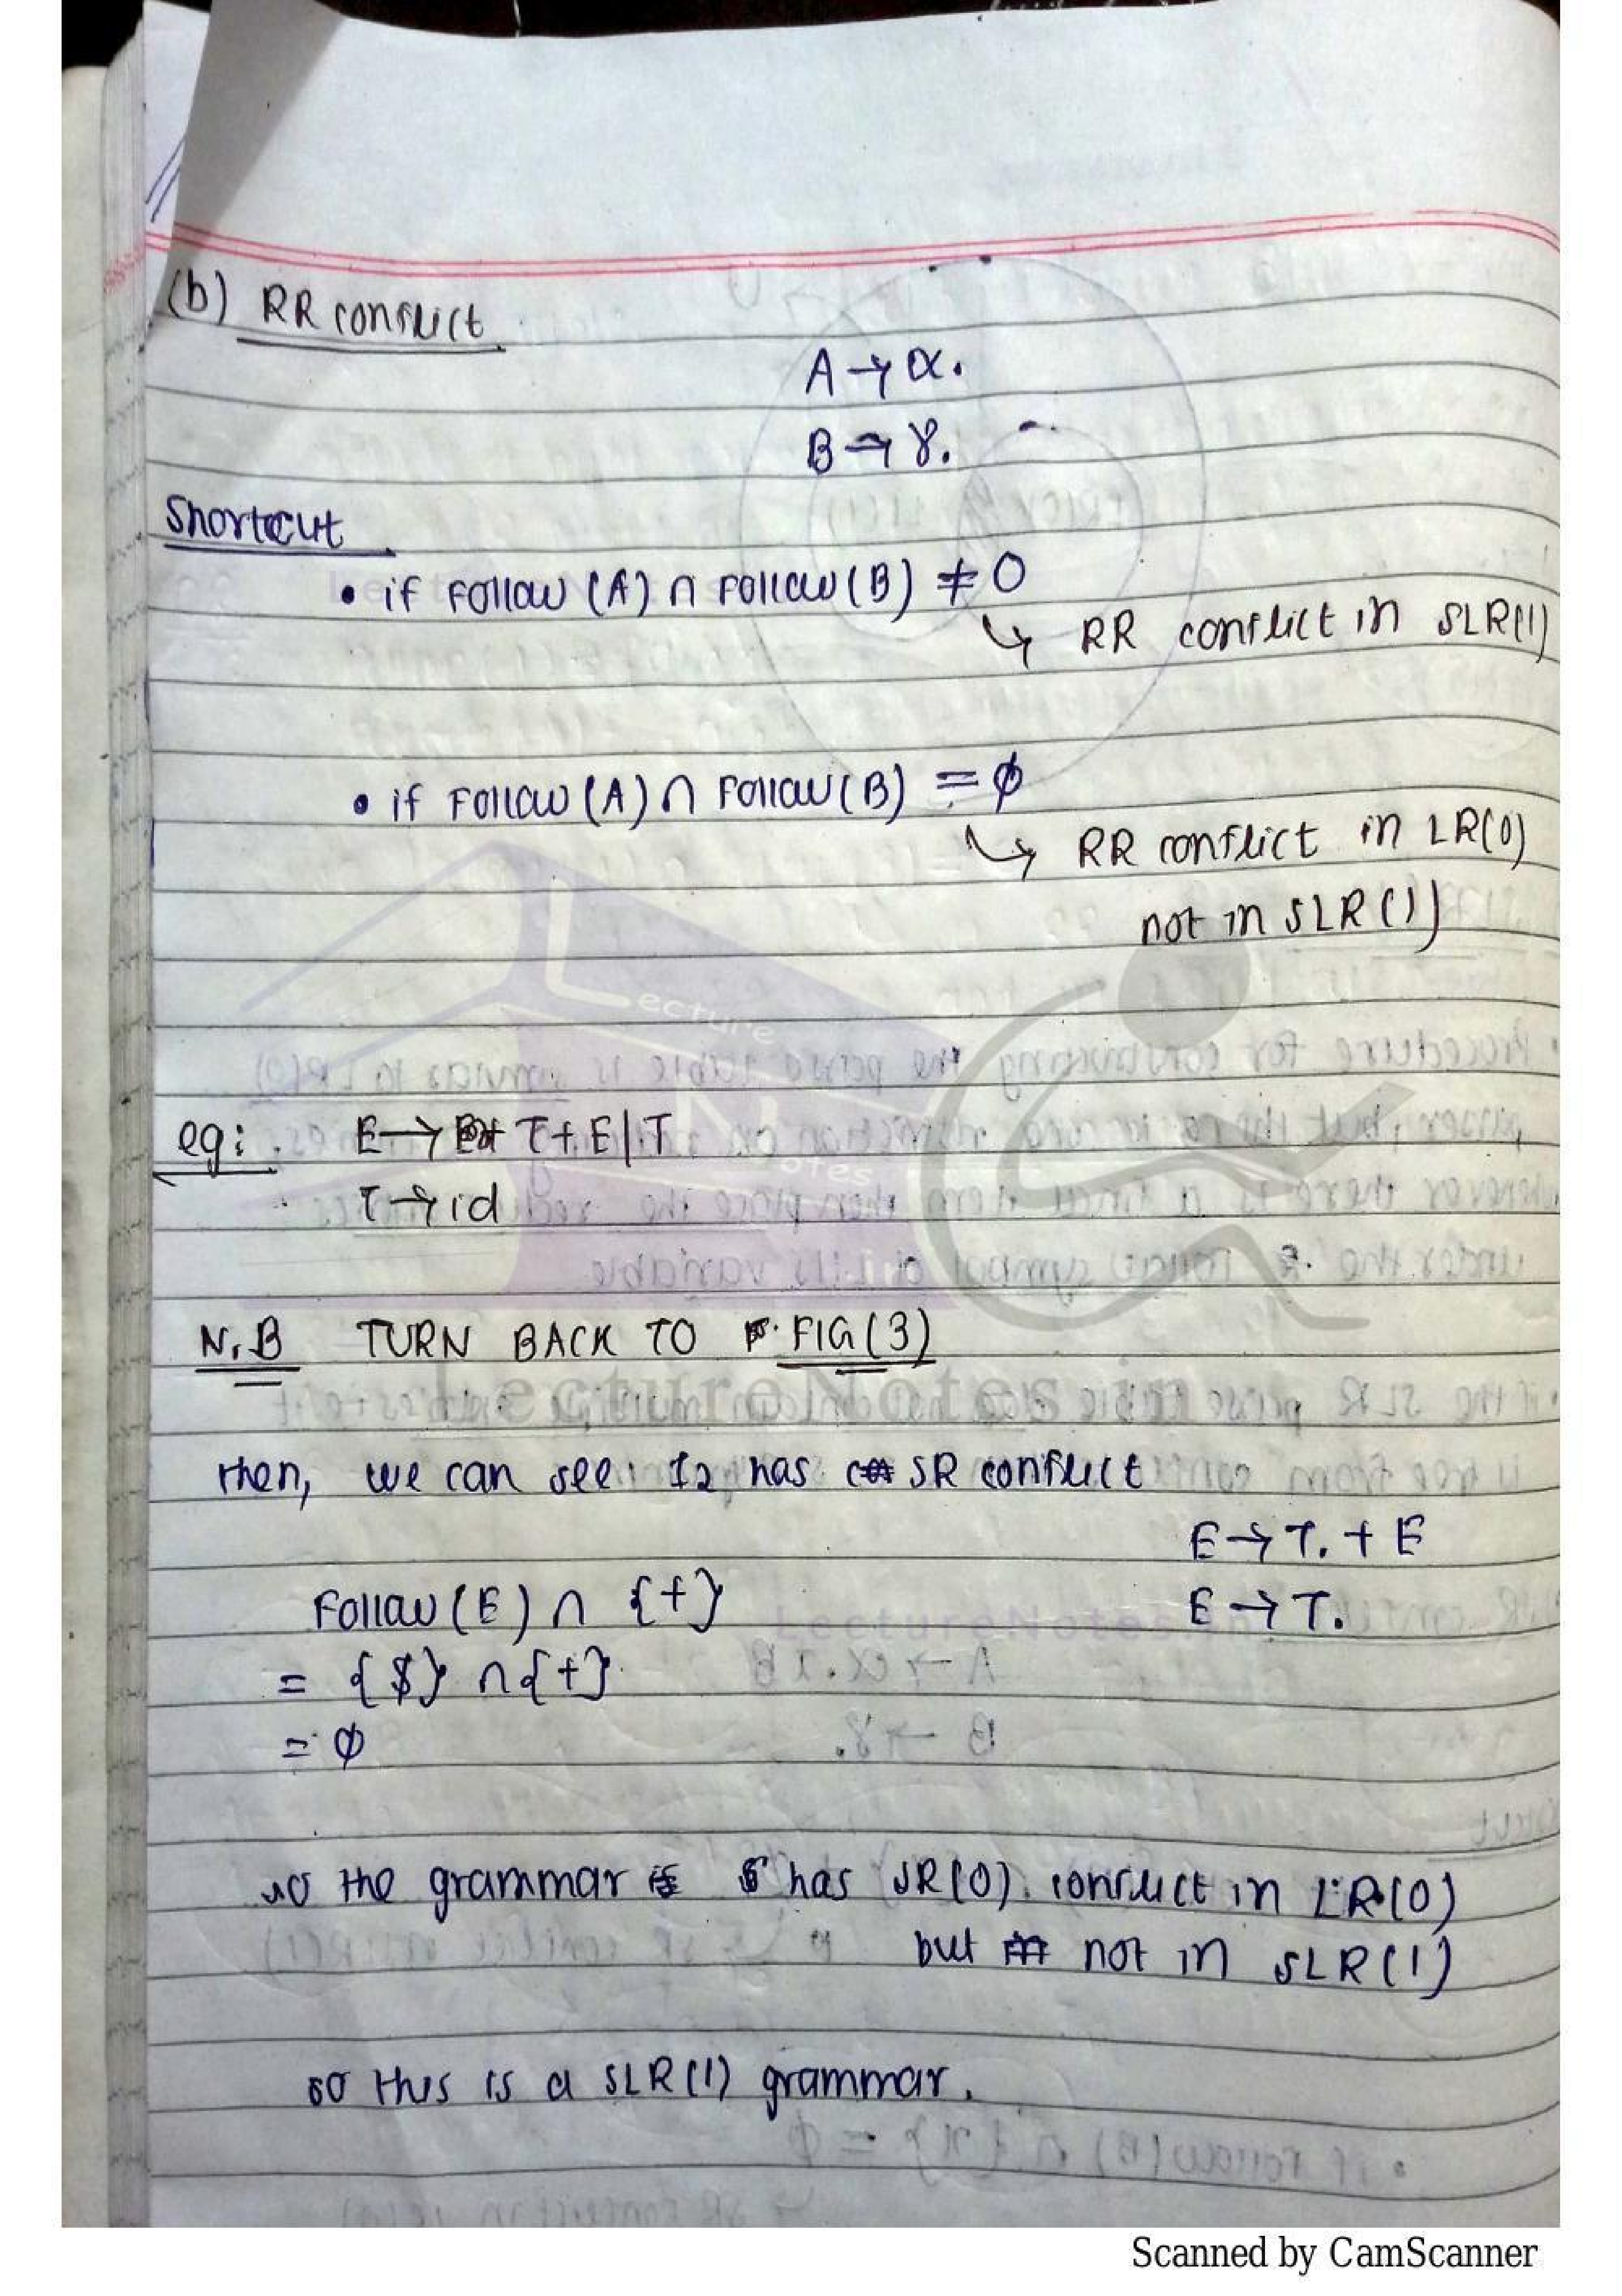 (b) RR conflict
A → α.
B → γ.
Shortcut
• if Follow (A) ∩ Follow (B) ≠ 0
↳ RR conflict in SLR(1)
• if Follow (A) ∩ Follow (B) = ϕ
↳ RR conflict in LR(0)
not in SLR(1)
Lecture
Notes
eg: E → T + E | T
T → id
N.B TURN BACK TO FIG(3)
LectureNotes.in
then, we can see I2 has SR conflict
E → T. + E
Follow (E) ∩ {+}
E → T.
LectureNotes.in
= {$} ∩ {+}
= ϕ
so the grammar has SR(0) conflict in LR(0)
but not in SLR(1)
so this is a SLR(1) grammar.
Scanned by CamScanner